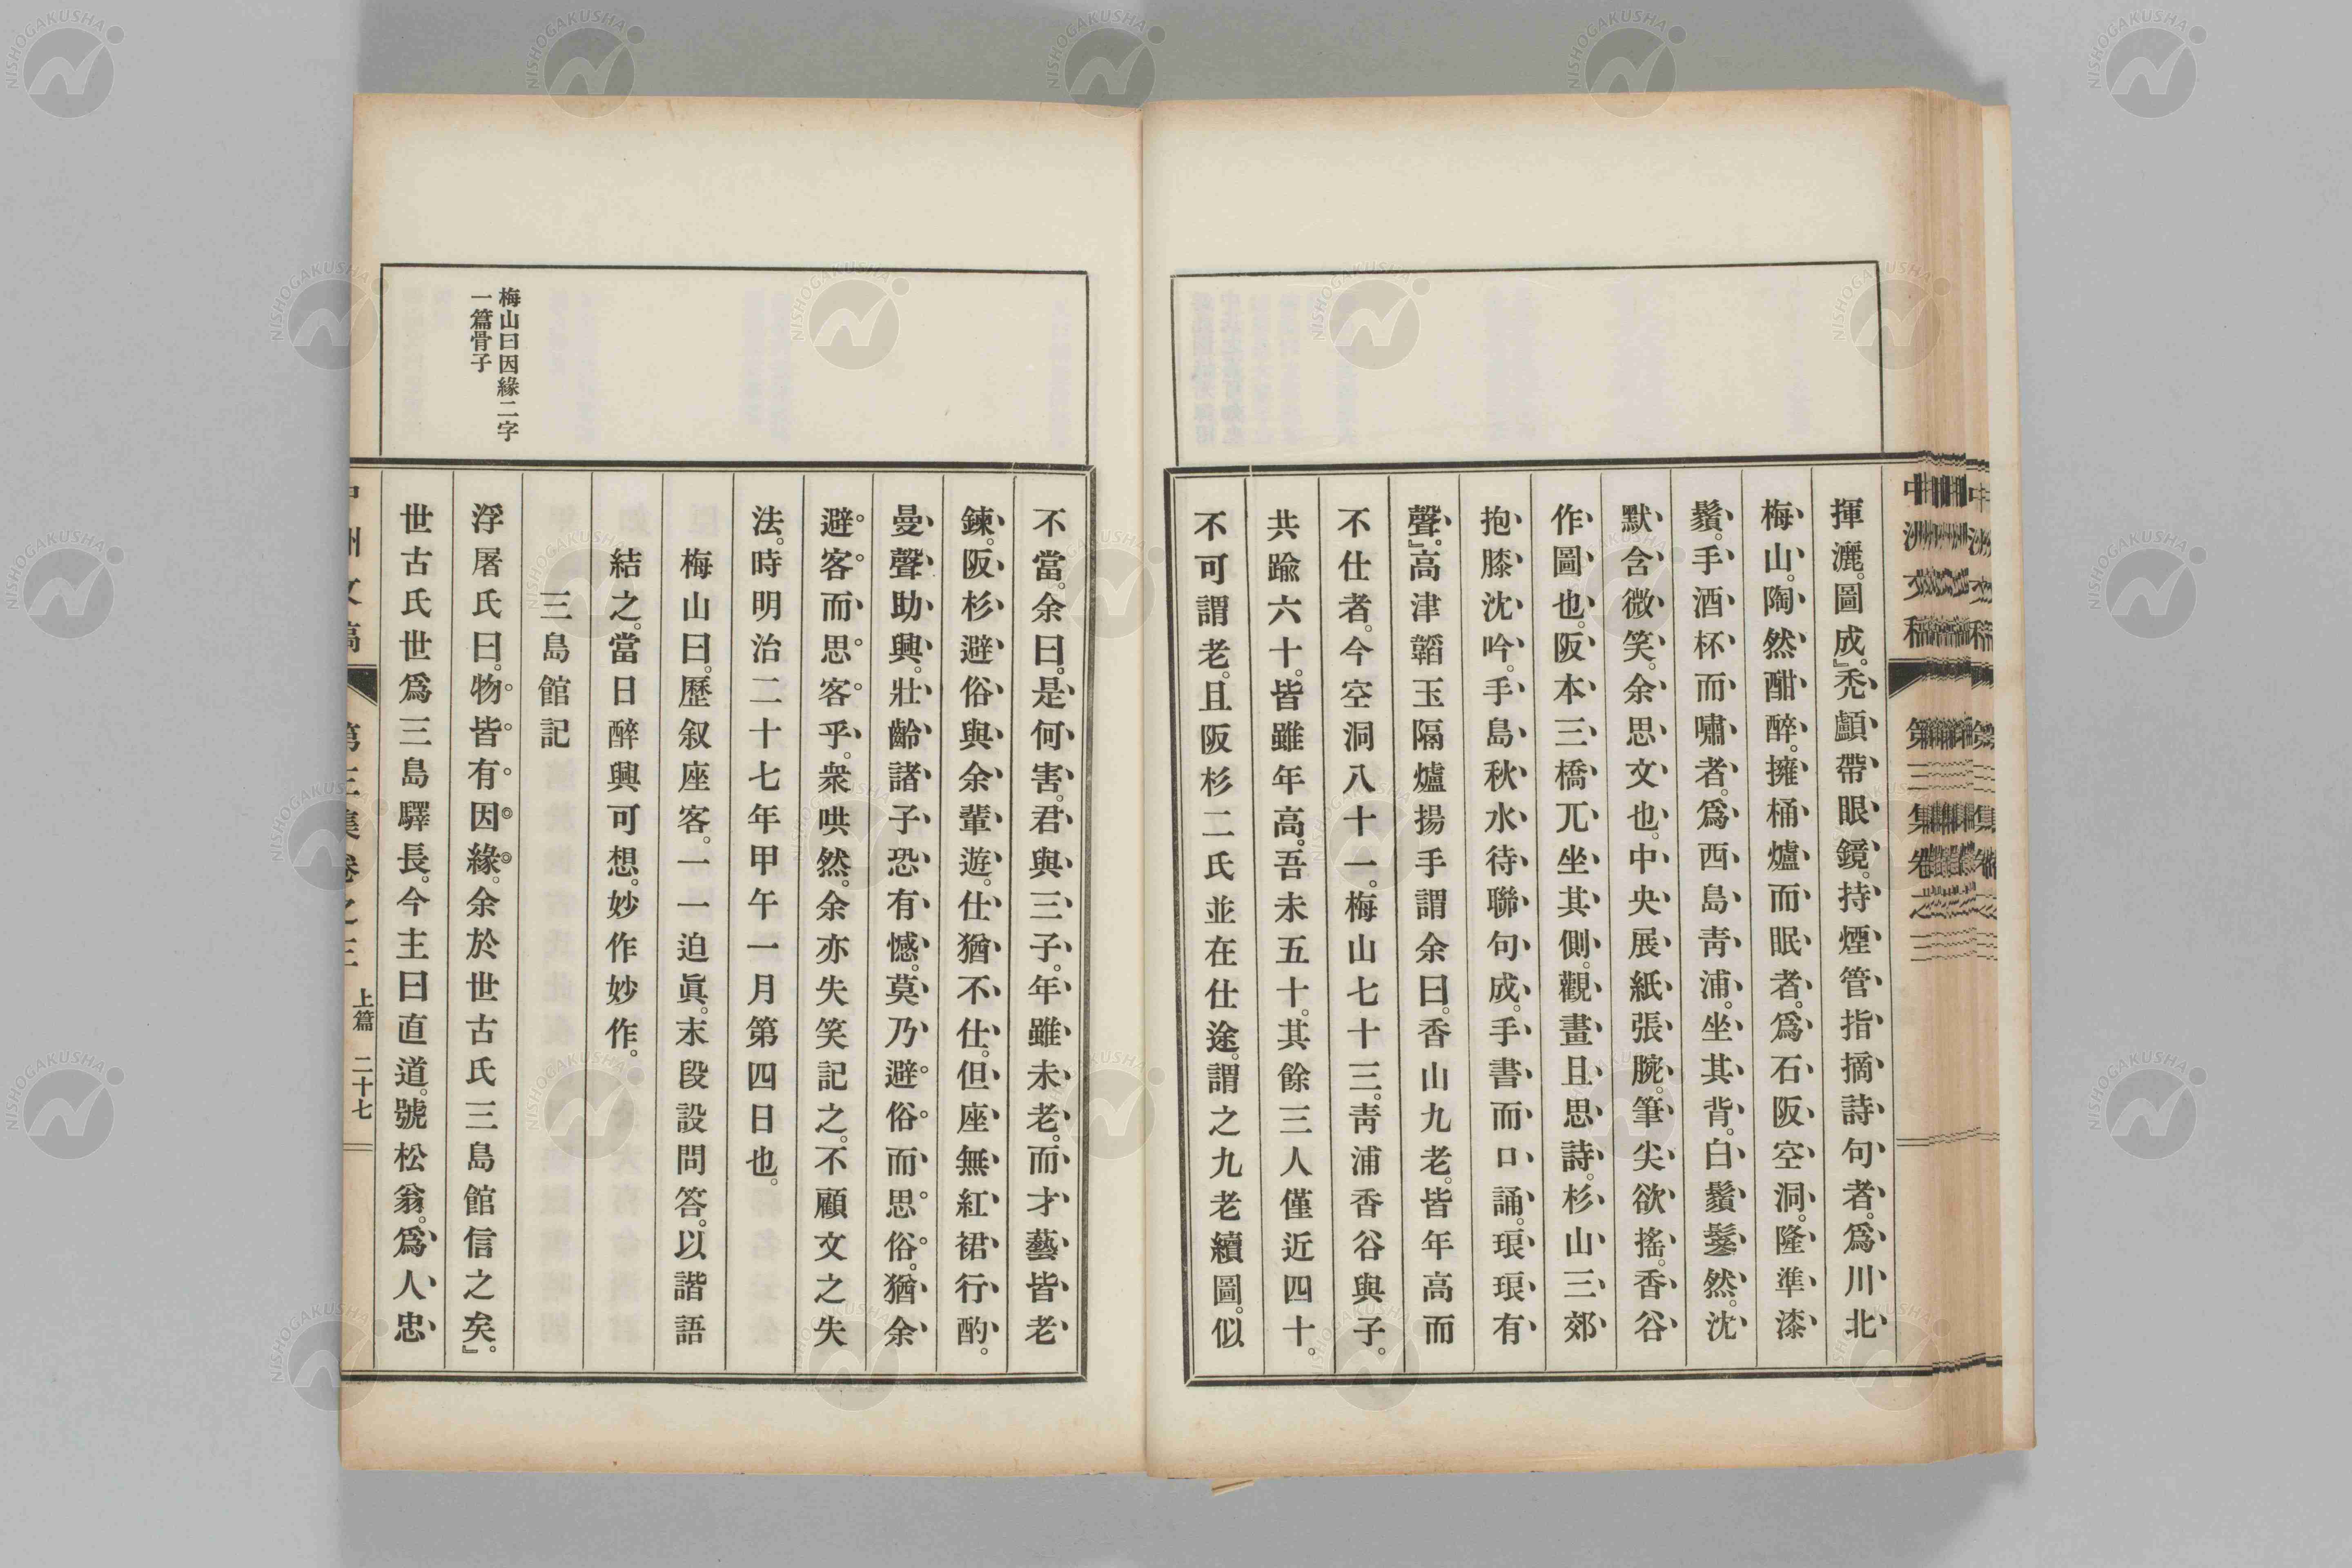 揮灑。圖成。』禿顱帶眼鏡。持煙管指摘詩句者。爲川北
梅山。陶然酣醉。擁桶爐而眠者。爲石阪空洞。隆準漆
鬚。手酒杯而嘯者。爲西島靑浦。坐其背。白鬚鬖然。沈
默含微笑。余思文也。中央展紙張腕。筆尖欲搖。香谷
作圖也。阪本三橋兀坐其側。觀畫且思詩。杉山三郊
抱膝沈吟。手島秋水待聯句成。手書而口誦。琅琅有
聲。』高津韜玉隔爐揚手謂余曰。香山九老。皆年高而
不仕者。今空洞八十一。梅山七十三。靑浦香谷與子。
共踰六十。皆雖年高。吾未五十。其餘三人僅近四十。
不可謂老。且阪杉二氏並在仕途。謂之九老續圖。似
不當。余曰。是何害。君與三子。年雖未老。而才藝皆老
鍊。阪杉避俗與余輩遊。仕猶不仕。但座無紅裙行酌。
曼聲助興。壯齡諸子恐有憾。莫乃避俗而思俗。猶余
避客而思客乎。衆哄然。余亦失笑記之。不顧文之失
法。時明治二十七年甲午一月第四日也。
梅山曰。歷叙座客。一一迫眞。末段設問答。以諧語
結之。當日醉興可想。妙作妙作。
三島館記
梅山曰因緣二字
一篇骨子
浮屠氏曰。物皆有因緣。余於世古氏三島館信之矣。』
世古氏世爲三島驛長。今主曰直道。號松翁。爲人忠
中洲文稿 第三集卷之三 上篇 二十七